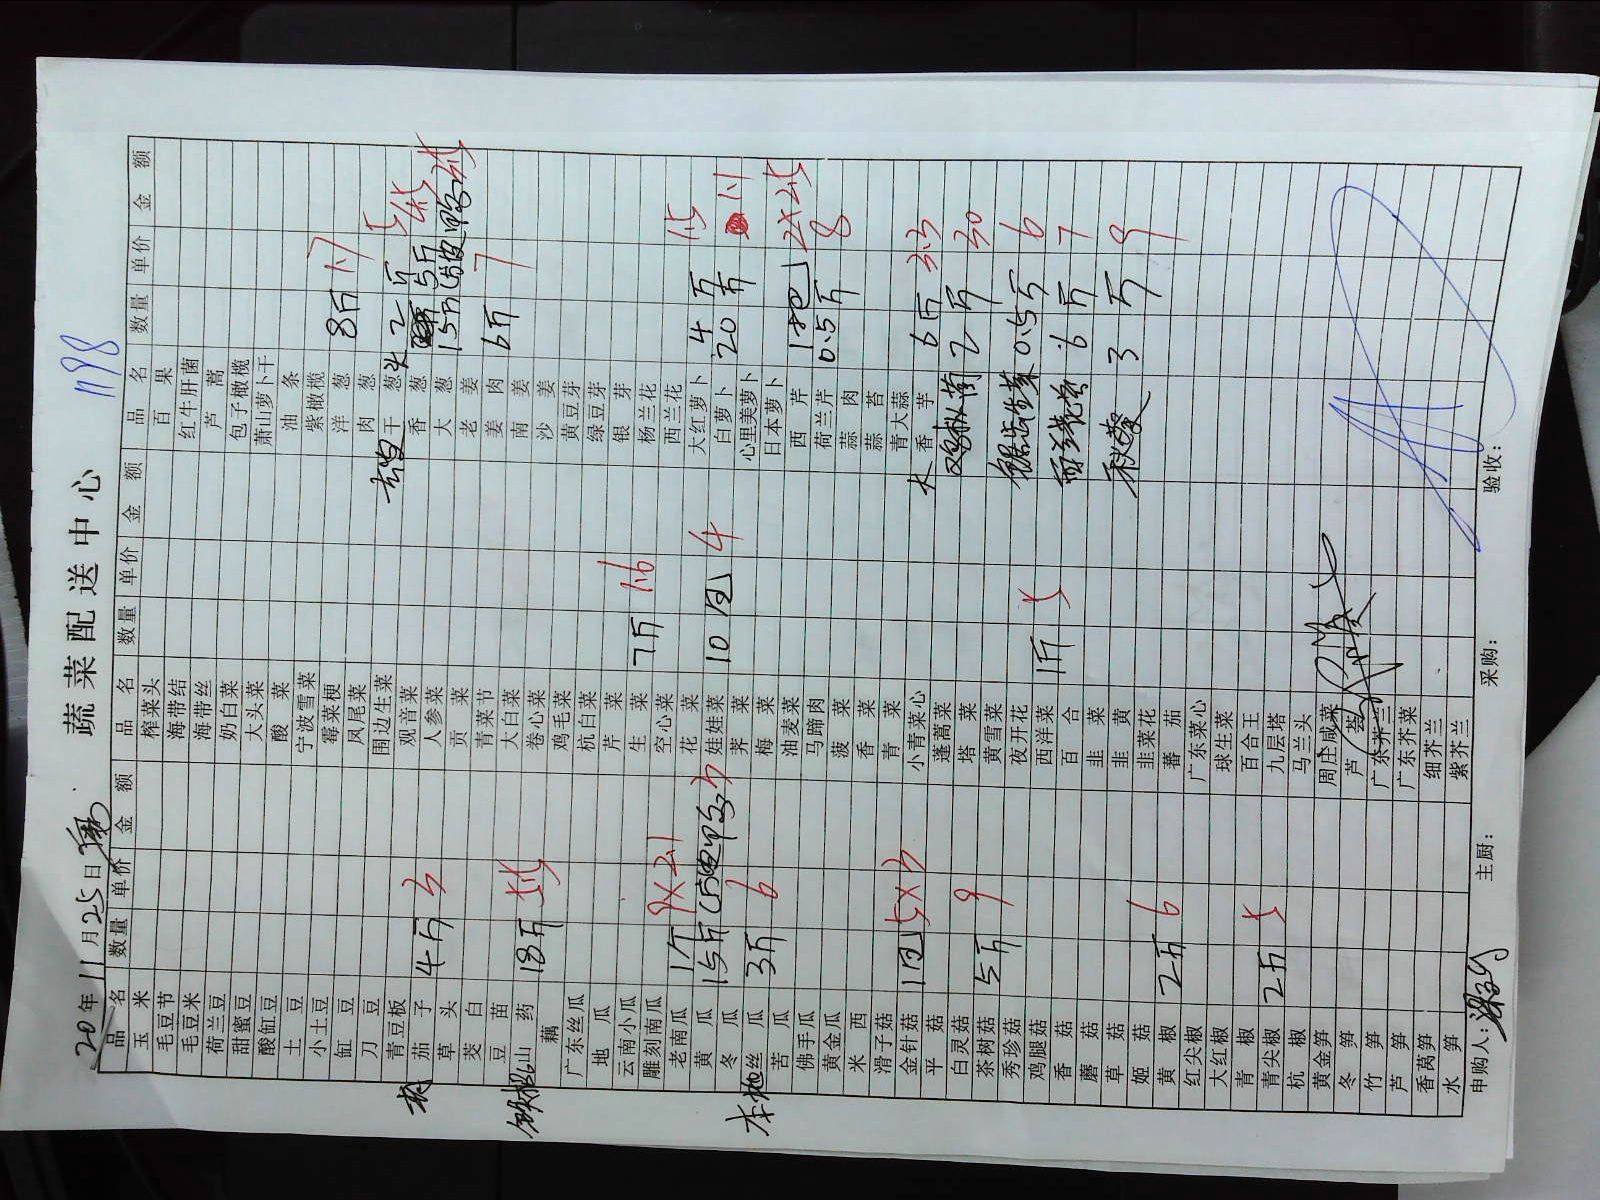 1198
蔬菜配送中心
20 年 11 月 25 日
品名 数量 单价 金额 品名 数量 单价 金额 品名 数量 单价 金额
玉米 榨菜头 百果
毛豆节 海带结 红牛肝菌
毛豆米 海带丝 芦蒿
荷兰豆 奶白菜 包子橄榄
甜蜜豆 大头菜 萧山萝卜干
酸缸豆 酸菜 油条
土豆 宁波雪菜 紫橄榄
小土豆 霉菜梗 洋葱 8斤 1.7
缸豆 凤尾菜 肉葱
刀豆 围边生菜 去皮干葱头 2斤 5
青豆板 观音菜 香葱 5斤 4.5
杭茄子 4斤 3 人参菜 大葱 15斤
草头 贡菜 老姜
茭白 青菜节 姜肉 6斤 7
豆苗 大白菜 南姜
铁棍山药 18斤 5.5 卷心菜 沙姜
藕 鸡毛菜 黄豆芽
广东丝瓜 杭白菜 绿豆芽
地瓜 芹菜 银芽
云南小瓜 生菜 7斤 1.6 杨兰花
雕刻南瓜 空心菜 西兰花
老南瓜 1个 9×2.1 花菜 大红萝卜 4斤 1.5
黄瓜 15斤 3 娃娃菜 10包 4 白萝卜 20斤 1.1
冬瓜 荠菜 心里美萝卜
本地丝瓜 3斤 6 梅菜 日本萝卜
苦瓜 油麦菜 西芹 1把 2×2.5
佛手瓜 马蹄肉 荷兰芹 0.5斤 8
黄金瓜 菠菜 蒜肉
米西 香菜 蒜苔
滑子菇 青菜 青大蒜
金针菇 1包 5×3 小青菜心 大香芋 6斤 3.5
平菇 蓬蒿菜 鸡枞菌 2斤 30
白灵菇 塔菜
茶树菇 5斤 9 黄雪菜 锯齿生菜 0.5斤 6
秀珍菇 夜开花
鸡腿菇 西洋菜 1斤 5 西兰花苔 6斤 7
香菇 百合
蘑菇 韭菜 秋葵 3斤 9
草菇 韭黄
姬菇 韭菜花
黄椒 2斤 6 蕃茄
红尖椒 广东菜心
大红椒 球生菜
青椒 百合王
青尖椒 2斤 5 九层塔
杭椒 马兰头
黄金笋 周庄咸菜
冬笋 芦荟
竹笋 广东芥兰
芦笋 广东芥菜
香莴笋 细芥兰
水笋 紫芥兰
申购人: 主厨: 采购: 验收: